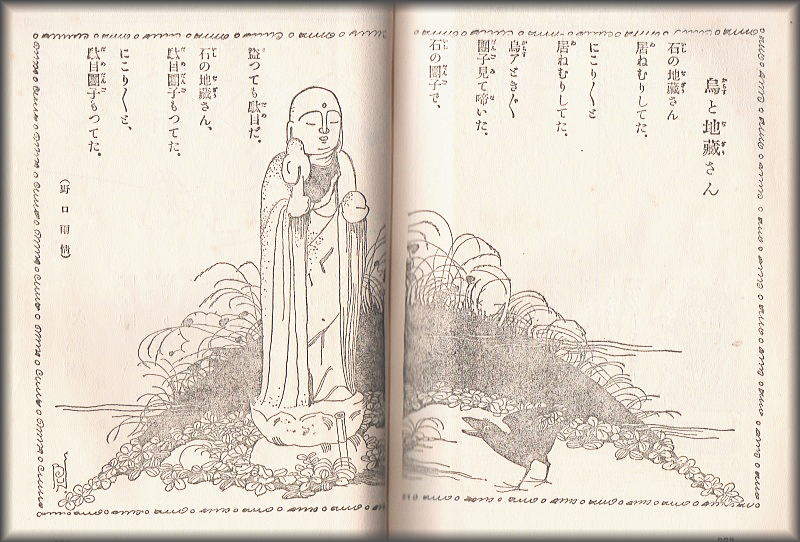 烏と地藏さん
石の地藏さん
居ねむりしてた。
にこり〱と
居ねむりしてた。
烏アとき〴〵
團子見て啼いた。
石の團子で、
盜つても駄目だ。
石の地藏さん、
駄目團子もつてた。
にこり〱と、
駄目團子もつてた。
(野口雨情)